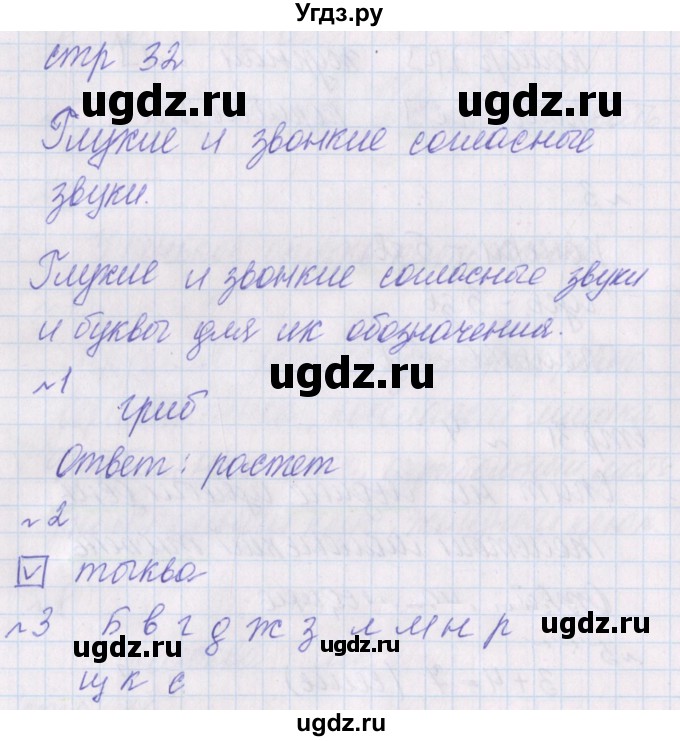 Угдз.ру
стр 32
ugdz.ru ugdz.ru
Глухие и звонкие согласные
звуки.
ugdz.ru
Глухие и звонкие согласные звуки
и буквы для их обозначения.
ugdz.ru
№1
гриб
Ответ: растет
ugdz.ru
№2
ugdz.ru
тыква
№3 Б в г д ж з л м н р
ugdz.ru
щ к с
ugdz.ru ugdz.ru
ugdz.ru